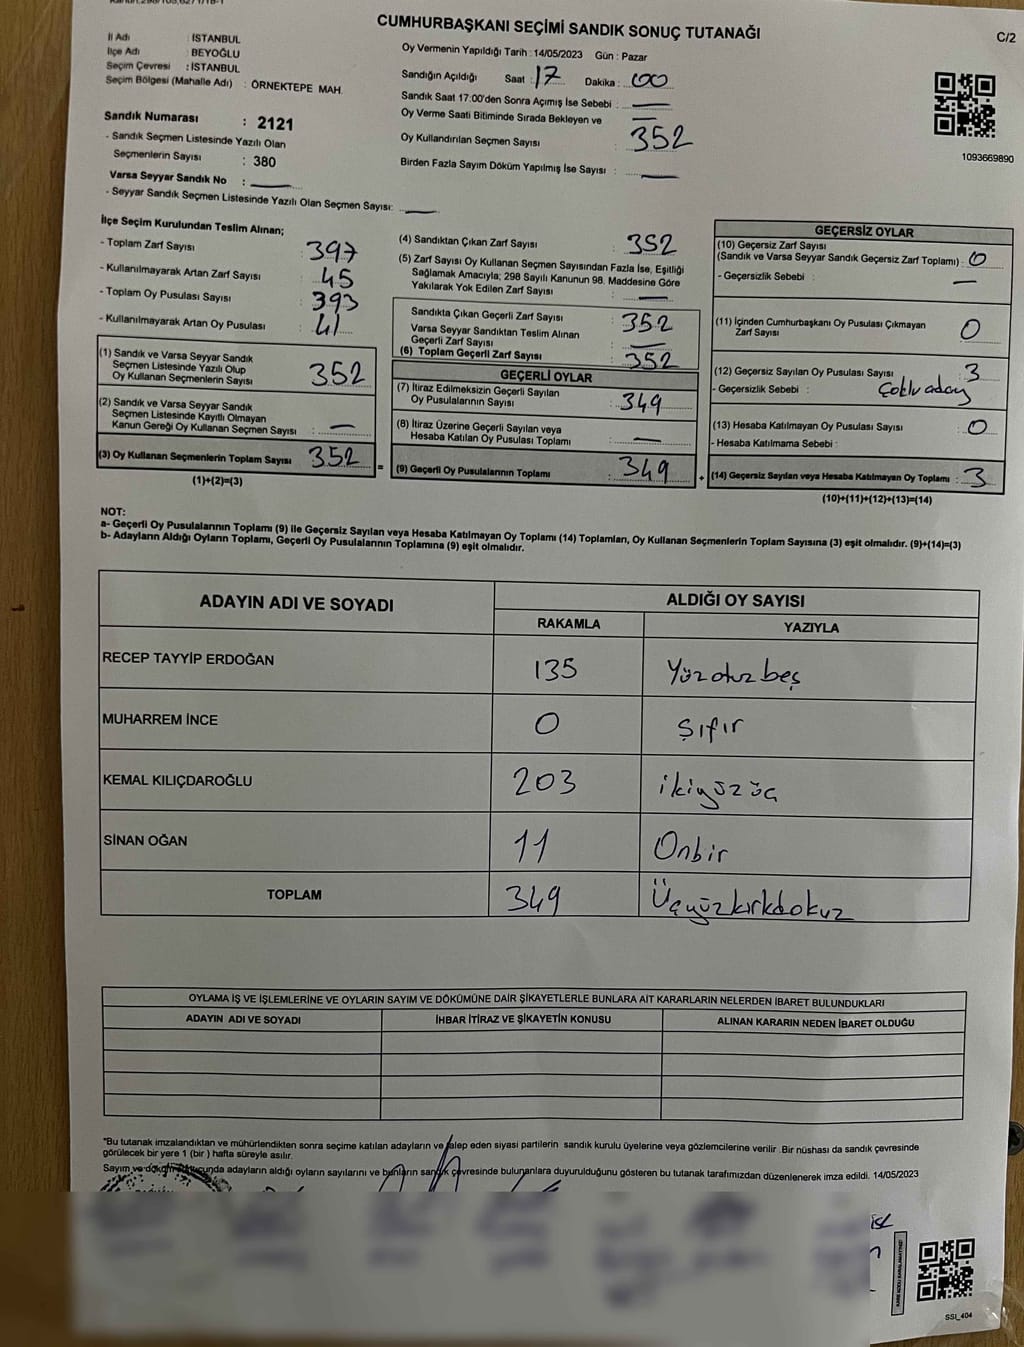 CUMHURBAŞKANI SEÇİMİ SANDIK SONUÇ TUTANAĞI
C/2
İl Adı : İSTANBUL
İlçe Adı : BEYOĞLU
Seçim Çevresi : İSTANBUL
Seçim Bölgesi (Mahalle Adı) : ÖRNEKTEPE MAH.
Sandık Numarası : 2121
- Sandık Seçmen Listesinde Yazılı Olan
Seçmenlerin Sayısı : 380
Varsa Seyyar Sandık No :
- Seyyar Sandık Seçmen Listesinde Yazılı Olan Seçmen Sayısı:
Oy Vermenin Yapıldığı Tarih : 14/05/2023 Gün : Pazar
Sandığın Açıldığı Saat : 17 Dakika : 00
Sandık Saat 17:00'den Sonra Açımış İse Sebebi :
Oy Verme Saati Bitiminde Sırada Bekleyen ve
Oy Kullandırılan Seçmen Sayısı : 352
Birden Fazla Sayım Döküm Yapılmış İse Sayısı :
1093669890
İlçe Seçim Kurulundan Teslim Alınan;
- Toplam Zarf Sayısı : 397
- Kullanılmayarak Artan Zarf Sayısı : 45
- Toplam Oy Pusulası Sayısı : 393
- Kullanılmayarak Artan Oy Pusulası : 41
(1) Sandık ve Varsa Seyyar Sandık
Seçmen Listesinde Yazılı Olup
Oy Kullanan Seçmenlerin Sayısı : 352
(2) Sandık ve Varsa Seyyar Sandık
Seçmen Listesinde Kayıtlı Olmayan
Kanun Gereği Oy Kullanan Seçmen Sayısı : —
(3) Oy Kullanan Seçmenlerin Toplam Sayısı : 352
(1)+(2)=(3)
=
(4) Sandıktan Çıkan Zarf Sayısı : 352
(5) Zarf Sayısı Oy Kullanan Seçmen Sayısından Fazla İse, Eşitliği
Sağlamak Amacıyla; 298 Sayılı Kanunun 98. Maddesine Göre
Yakılarak Yok Edilen Zarf Sayısı : —
Sandıkta Çıkan Geçerli Zarf Sayısı : 352
Varsa Seyyar Sandıktan Teslim Alınan
Geçerli Zarf Sayısı : —
(6) Toplam Geçerli Zarf Sayısı : 352
GEÇERLİ OYLAR
(7) İtiraz Edilmeksizin Geçerli Sayılan
Oy Pusulalarının Sayısı : 349
(8) İtiraz Üzerine Geçerli Sayılan veya
Hesaba Katılan Oy Pusulası Toplamı : —
(9) Geçerli Oy Pusulalarının Toplamı : 349
+
GEÇERSİZ OYLAR
(10) Geçersiz Zarf Sayısı
(Sandık ve Varsa Seyyar Sandık Geçersiz Zarf Toplamı) : 0
- Geçersizlik Sebebi : —
(11) İçinden Cumhurbaşkanı Oy Pusulası Çıkmayan
Zarf Sayısı : 0
(12) Geçersiz Sayılan Oy Pusulası Sayısı : 3
- Geçersizlik Sebebi : Çoklu aday
(13) Hesaba Katılmayan Oy Pusulası Sayısı : 0
- Hesaba Katılmama Sebebi :
(14) Geçersiz Sayılan veya Hesaba Katılmayan Oy Toplamı : 3
(10)+(11)+(12)+(13)=(14)
NOT:
a- Geçerli Oy Pusulalarının Toplamı (9) ile Geçersiz Sayılan veya Hesaba Katılmayan Oy Toplamı (14) Toplamları, Oy Kullanan Seçmenlerin Toplam Sayısına (3) eşit olmalıdır. (9)+(14)=(3)
b- Adayların Aldığı Oyların Toplamı, Geçerli Oy Pusulalarının Toplamına (9) eşit olmalıdır.
ADAYIN ADI VE SOYADI
ALDIĞI OY SAYISI
RAKAMLA YAZIYLA
RECEP TAYYİP ERDOĞAN 135 Yüzotuzbeş
MUHARREM İNCE 0 Sıfır
KEMAL KILIÇDAROĞLU 203 ikiyüzüç
SİNAN OĞAN 11 Onbir
TOPLAM 349 Üçyüzkırkdokuz
OYLAMA İŞ VE İŞLEMLERİNE VE OYLARIN SAYIM VE DÖKÜMÜNE DAİR ŞİKAYETLERLE BUNLARA AİT KARARLARIN NELERDEN İBARET BULUNDUKLARI
ADAYIN ADI VE SOYADI İHBAR İTİRAZ VE ŞİKAYETİN KONUSU ALINAN KARARIN NEDEN İBARET OLDUĞU
*Bu tutanak imzalandıktan ve mühürlendikten sonra seçime katılan adayların ve talep eden siyasi partilerin sandık kurulu üyelerine veya gözlemcilerine verilir .Bir nüshası da sandık çevresinde
görülecek bir yere 1 (bir ) hafta süreyle asılır.
Sayım ve dökümde adayların aldığı oyların sayılarını ve bunların sandık çevresinde bulunanlara duyurulduğunu gösteren bu tutanak tarafımızdan düzenlenerek imza edildi. 14/05/2023
SSI_404